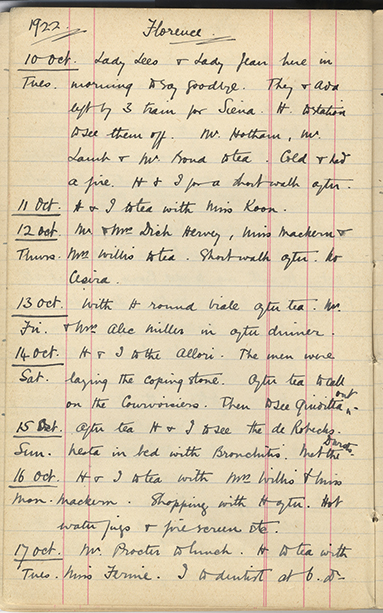 1922 Florence.
10 Oct. Lady Lees & Lady Jean here in
Tues. morning to say goodbye. They & Ava
left by 3 train for Siena. H. to station
to see them off. Mr. Hotham, Mr.
Lamb & Mr. Bond to tea. Cold & had
a fire. H & I for a short walk after.
11 Oct. H & I to tea with Miss Koon.
12 Oct. Mr & Mrs Dick Hervey, Miss Mackern &
Thurs. Mrs Willis to tea. Short walk after. No
13 Oct. With H round viale after tea. Mr.
Fri. & Mrs Alec Miller in after dinner.
14 Oct. H & I to the Allori. The men were
Sat. laying the coping stone. After tea to call
on the Courvoisiers. Then to see out
15 Oct. After tea H & I to see the de
Sun. in bed with Bronchitis. Met the
16 Oct. H & I to tea with Mrs Willis & Miss
Mon. Mackern. Shopping with H after. Hot
water jugs & fire screen etc.
17 Oct. Mr. Procter to lunch. H to tea with
Tues. Miss I to dentist at 6.